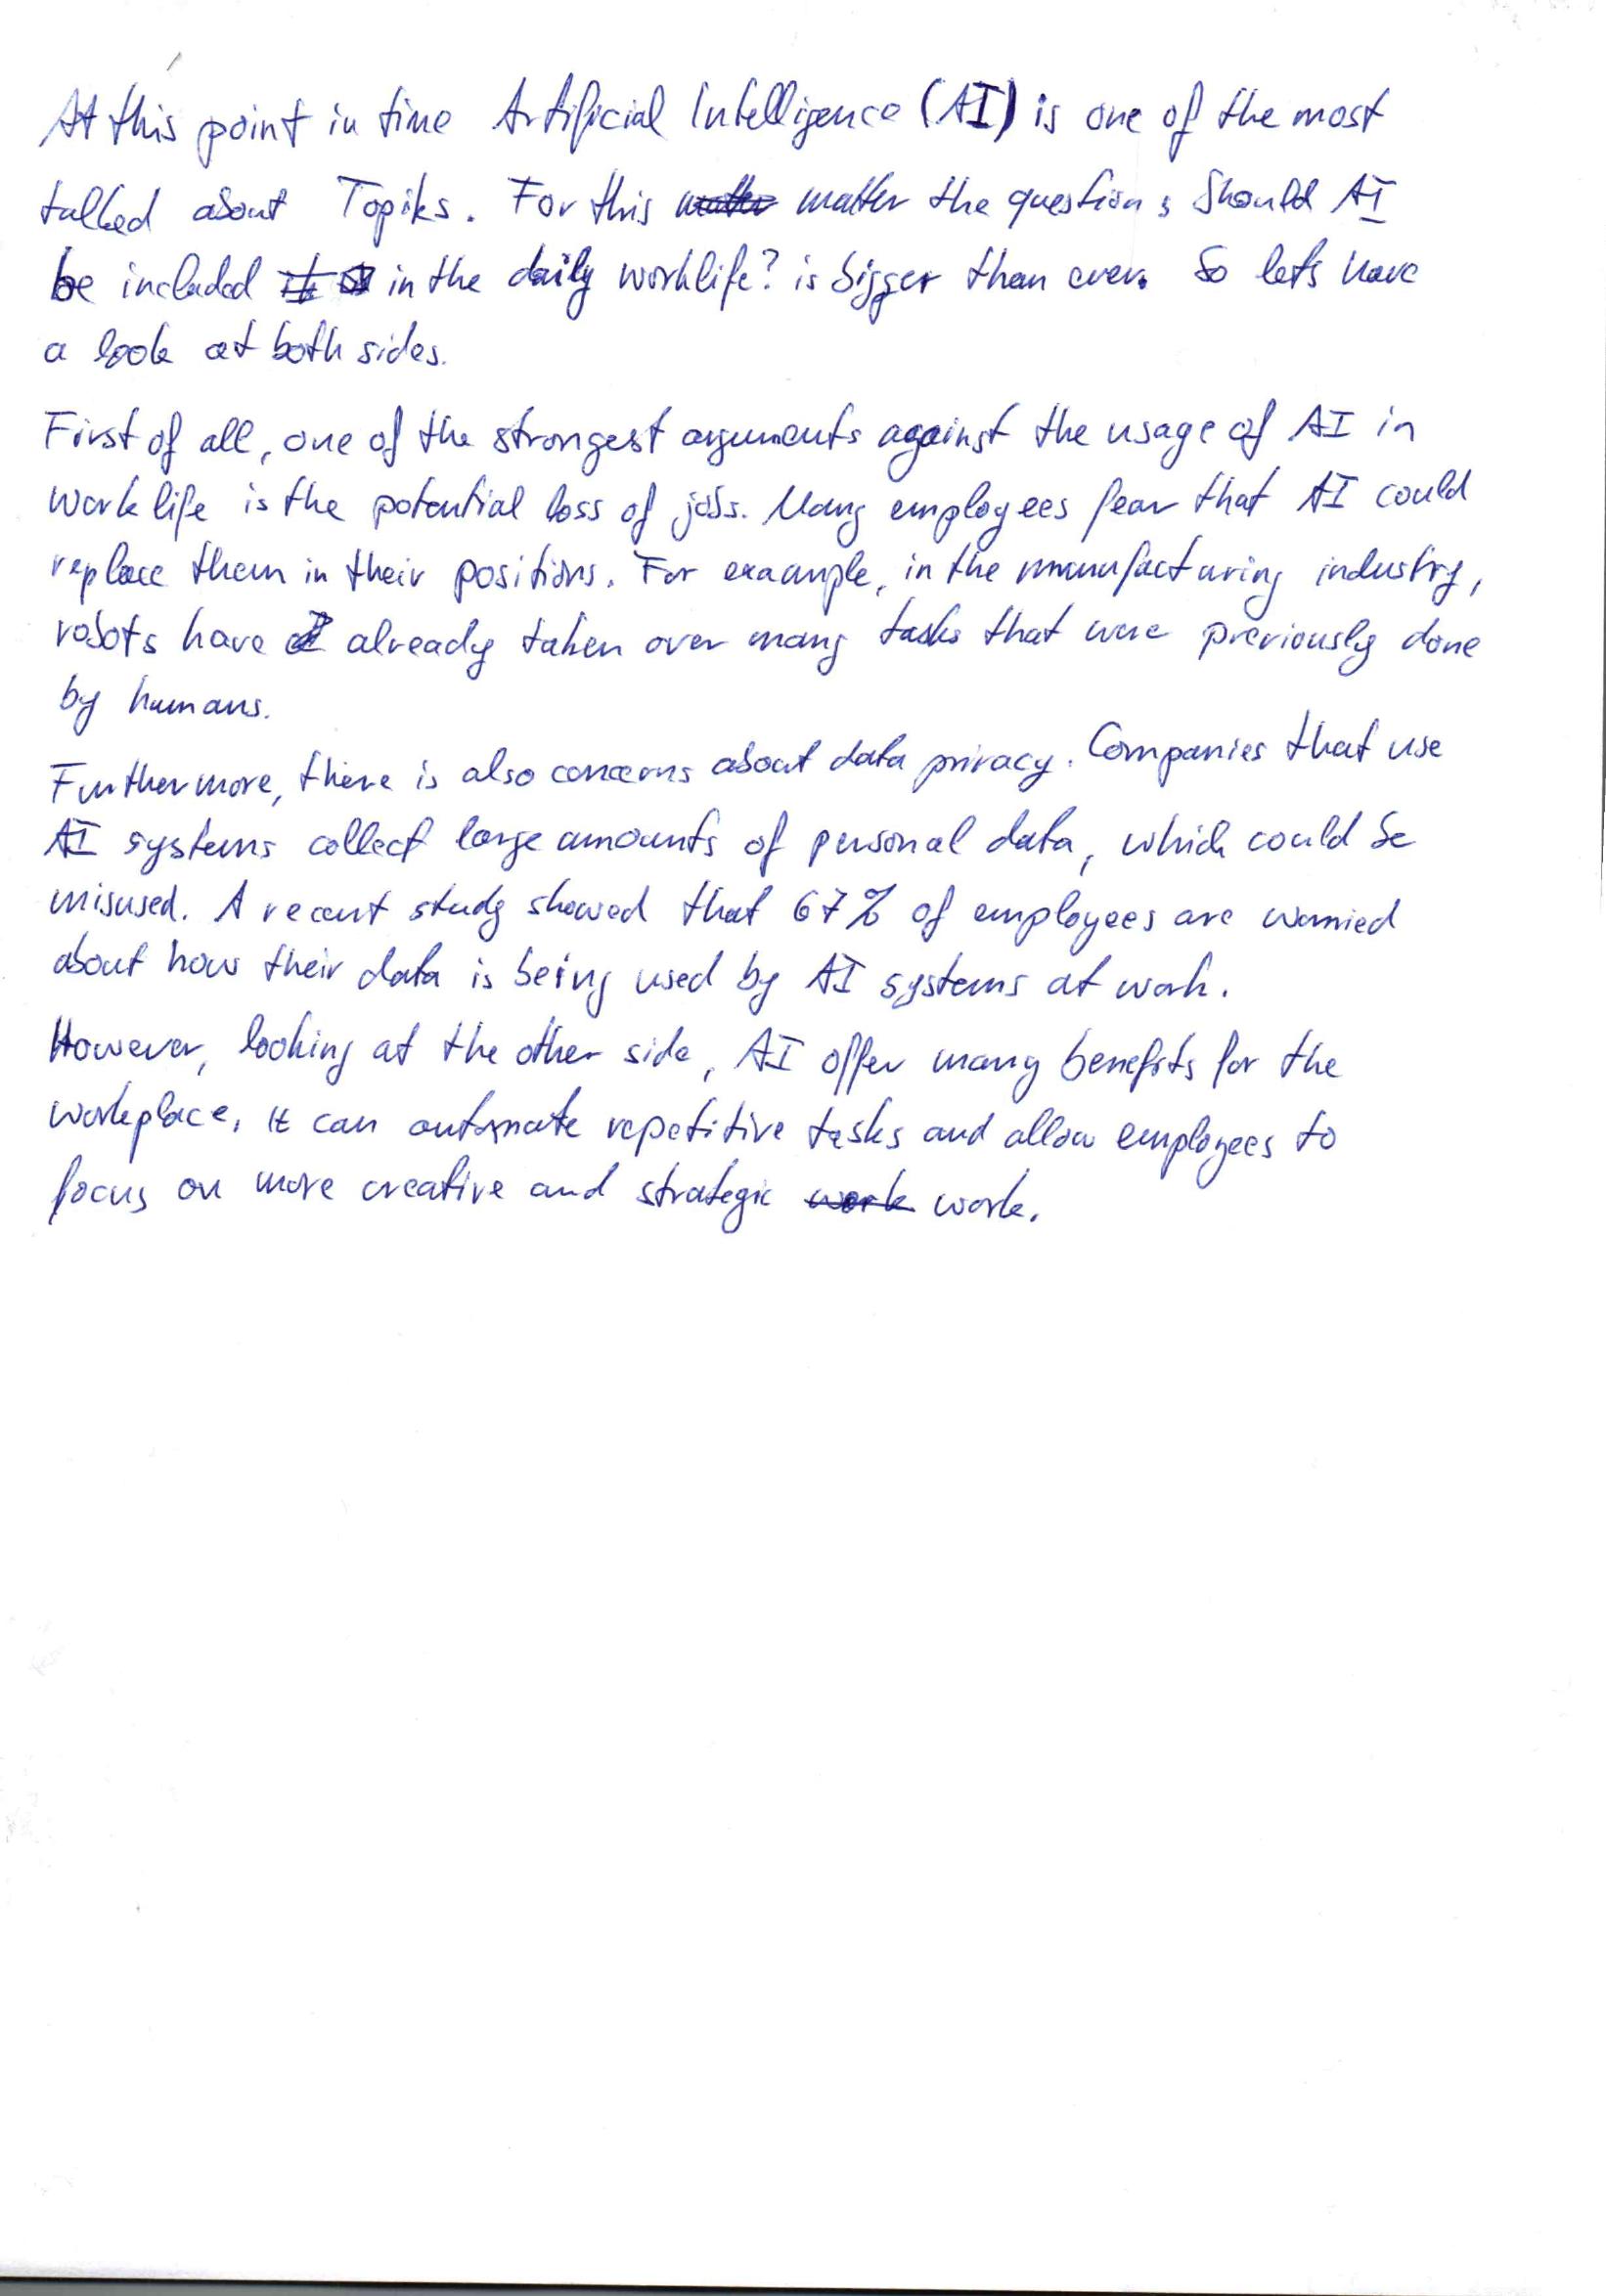 At this point in time Artificial Intelligence (AI) is one of the most
talked about Topiks. For this matter the question: Should AI
be included in the daily worklife? is bigger than ever. So let's have
a look at both sides.
First of all, one of the strongest arguments against the usage of AI in
work life is the potential loss of jobs. Many employees fear that AI could
replace them in their positions. For exaample, in the mmanufacturing industry,
robots have already taken over many tasks that were previously done
by humans.
Furthermore, there is also concerns about data privacy. Companies that use
AI systems collect large amounts of personal data, which could be
misused. A recent study showed that 67% of employees are worried
about how their data is being used by AI systems at work.
However, looking at the other side, AI offer many benefits for the
workplace. It can automate repetitive tasks and allow employees to
focus on more creative and strategic work.